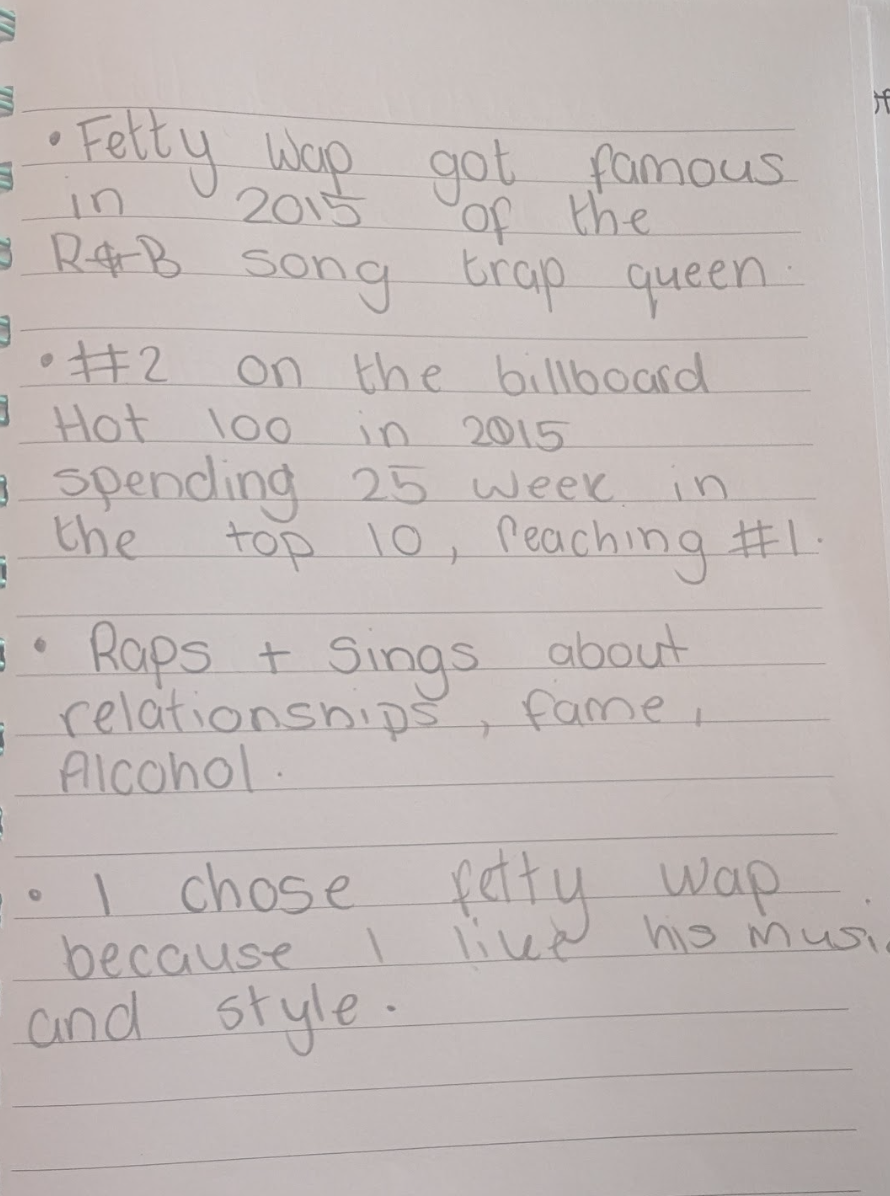 • Fetty Wap got famous
in 2015 of the
R&B song trap queen.
• #2 on the billboard
Hot 100 in 2015
spending 25 week in
the top 10, reaching #1.
• Raps + Sings about
relationships, fame,
Alcohol.
• I chose fetty wap
because I like his musi
and style.